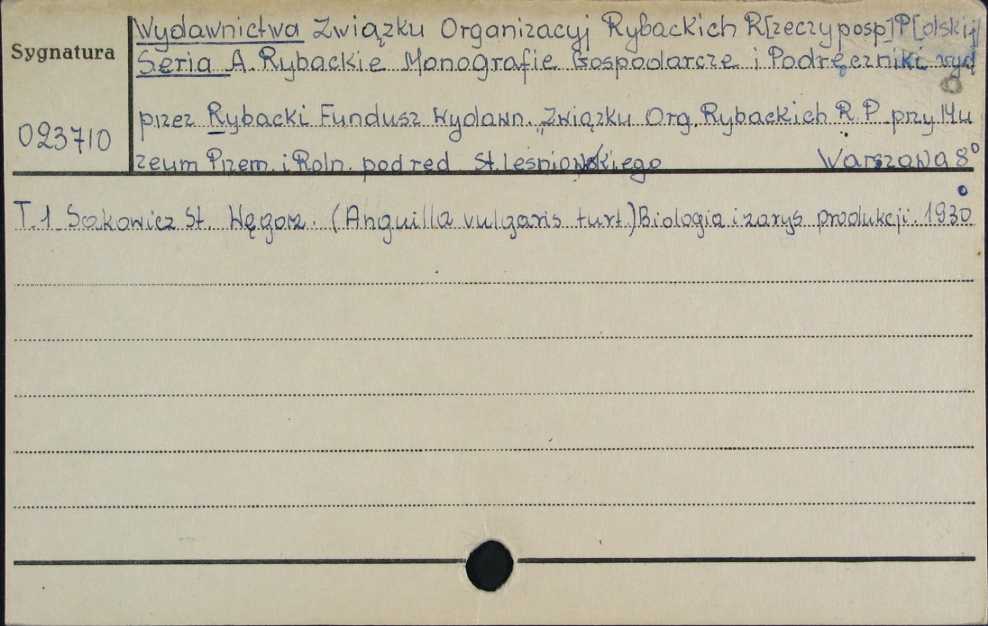 Wydawnictwa Związku Organizacyj Rybackich R[zeczyposp] P[olskij]
Sygnatura
Seria A. Rybackie Monografie Gospodarcze i Podręczniki wyd
023710
przez Rybacki Fundusz Wydawn. „Związku Org. Rybackich R. P. przy Mu
zeum Przem. i Roln. pod red St. Leśniowskiego Warszawa 8°
T. 1 Sakowicz St. Węgorz. (Anguilla vulgaris turt.) Biologia i zarys produkcji. 1930